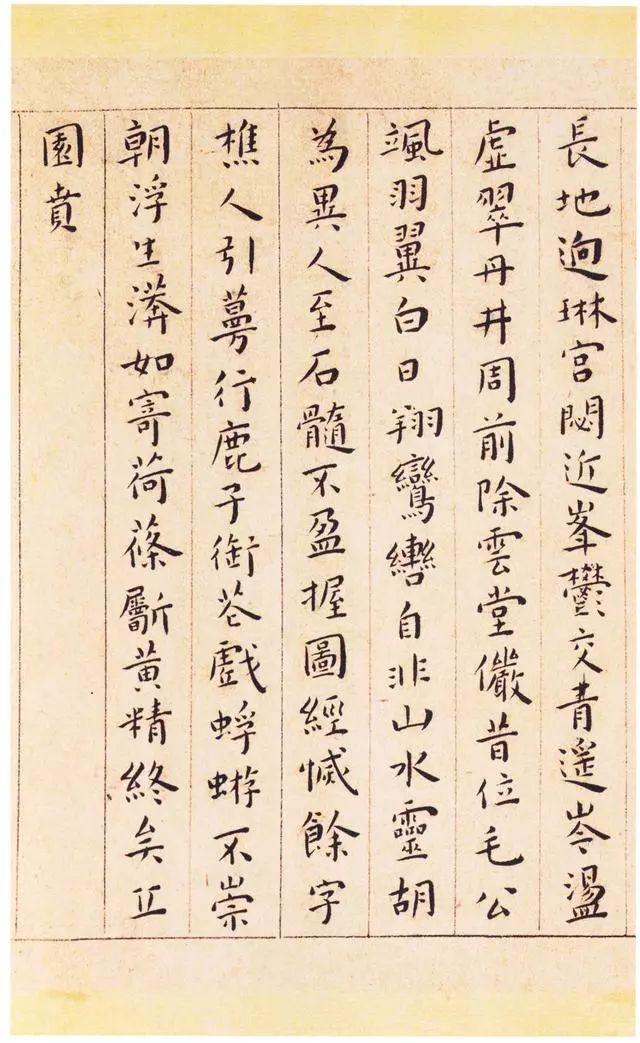 長地逈琳宮閟近峯鬱交青遥岑盪
虛翠丹井周前除雲堂儼昔位毛公
颯羽翼白日翔鸞轡自非山水靈胡
為異人至石髓不盈握圖經慽餘字
樵人引蔓行鹿子銜花戲蜉蝣不崇
朝浮生漭如寄荷蓧斸黄精終矣丘
園賁